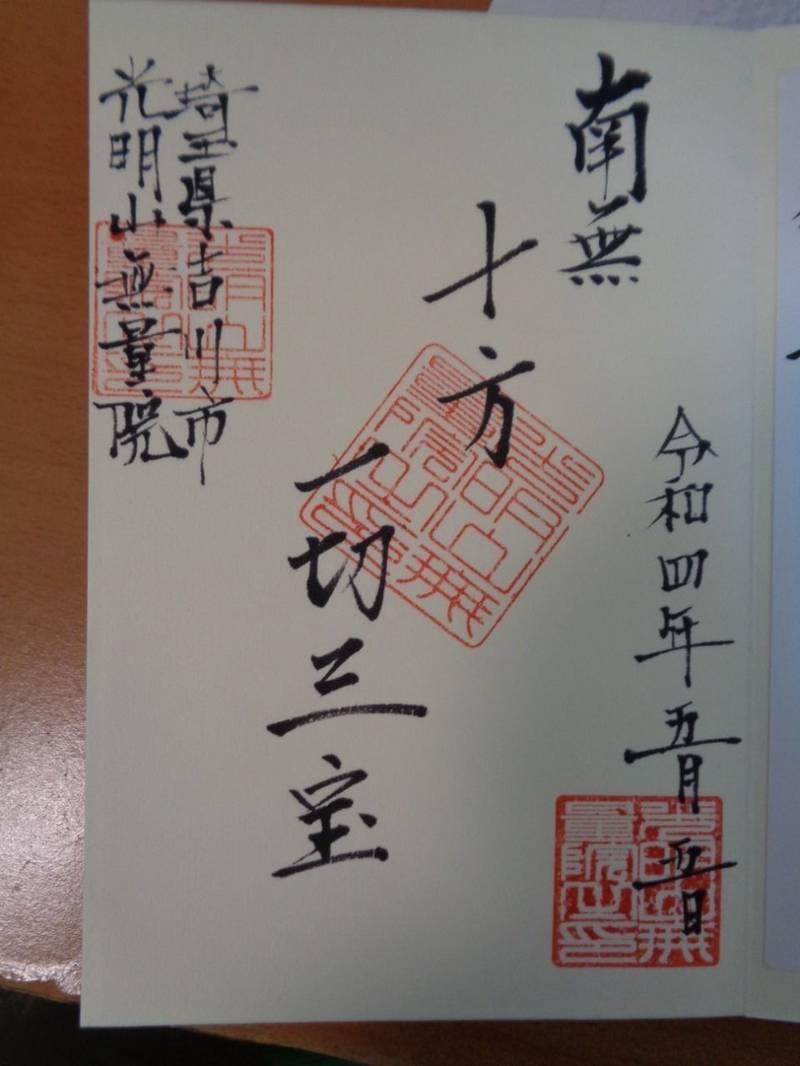 南無
十方
一切三宝
令和四年五月五日
埼玉県吉川市
光明山無量院